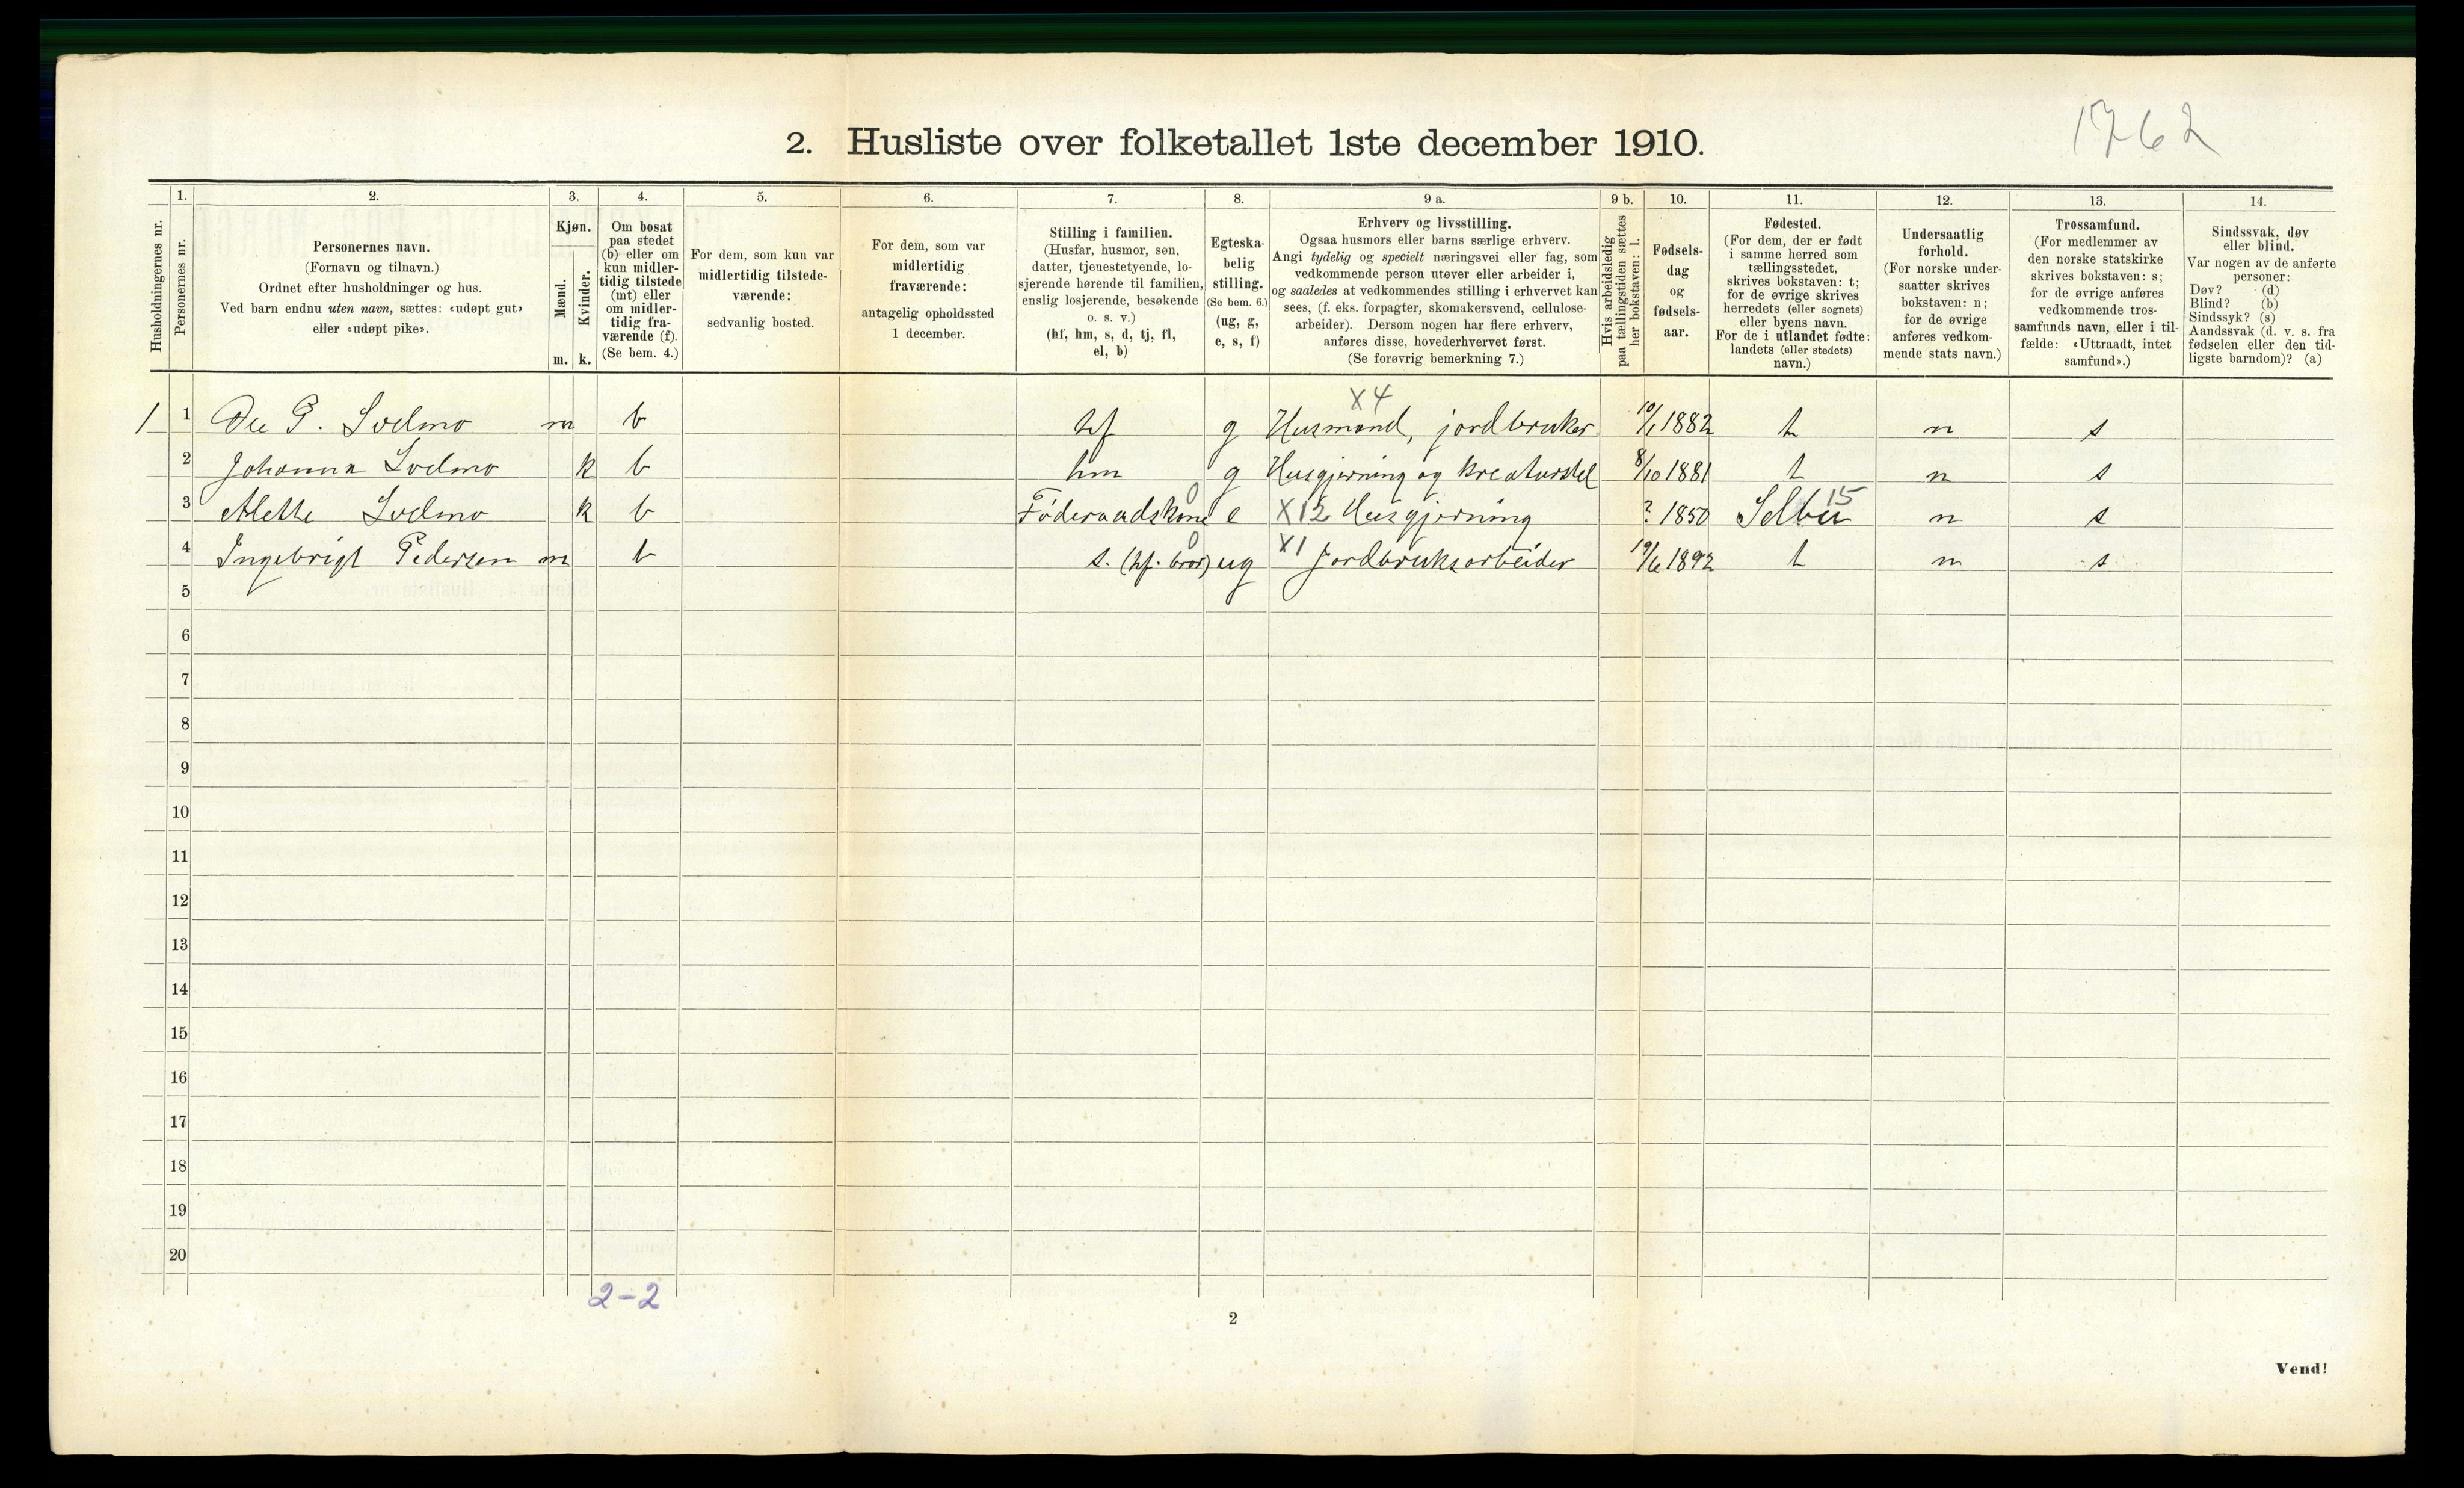 1762
2. Husliste over folketallet 1ste december 1910.
Husholdningernes nr.
1.
Personernes nr.
2.
Personernes navn.
(Fornavn og tilnavn.)
Ordnet efter husholdninger og hus.
Ved barn endnu uten navn, sættes: «udøpt gut»
eller «udøpt pike».
3.
Kjøn.
Mænd.
m.
Kvinder.
k.
4.
Om bosat
paa stedet
(b) eller om
kun midler-
tidig tilstede
(mt) eller
om midler-
tidig fra-
værende (f).
(Se bem. 4.)
5.
For dem, som kun var
midlertidig tilstede-
værende:
sedvanlig bosted.
6.
For dem, som var
midlertidig
fraværende:
antagelig opholdssted
1 december.
7.
Stilling i familien.
(Husfar, husmor, søn,
datter, tjenestetyende, lo-
sjerende hørende til familien,
enslig losjerende, besøkende
o. s. v.)
(hf, hm, s, d, tj, fl,
el, b)
8.
Egteska-
belig
stilling.
(Se bem. 6.)
(ug, g,
e, s, f)
9 a.
Erhverv og livsstilling.
Ogsaa husmors eller barns særlige erhverv.
Angi tydelig og specielt næringsvei eller fag, som
vedkommende person utøver eller arbeider i,
og saaledes at vedkommendes stilling i erhvervet kan
sees, (f. eks. forpagter, skomakersvend, cellulose-
arbeider). Dersom nogen har flere erhverv,
anføres disse, hovederhvervet først.
(Se forøvrig bemerkning 7.)
9 b.
Hvis arbeidsledig
paa tællingstiden sættes
her bokstaven: l.
10.
Fødsels-
dag
og
fødsels-
aar.
11.
Fødested.
(For dem, der er født
i samme herred som
tællingsstedet,
skrives bokstaven: t;
for de øvrige skrives
herredets (eller sognets)
eller byens navn.
For de i utlandet fødte:
landets (eller stedets)
navn.)
12.
Undersaatlig
forhold.
(For norske under-
saatter skrives
bokstaven: n;
for de øvrige
anføres vedkom-
mende stats navn.)
13.
Trossamfund.
(For medlemmer av
den norske statskirke
skrives bokstaven: s;
for de øvrige anføres
vedkommende tros-
samfunds navn, eller i til-
fælde: «Uttraadt, intet
samfund».)
14.
Sindssvak, døv
eller blind.
Var nogen av de anførte
personer:
Døv? (d)
Blind? (b)
Sindssyk? (s)
Aandssvak (d. v. s. fra
fødselen eller den tid-
ligste barndom)? (a)
X4
1 1 Ole P. m b hf g Husmand, jordbruker 10/1 1882 t n s
2 Johanna k b hm g Husgjerning og kreaturstel 8/10 1881 t n s
0 15
3 Alette k b Føderaadskone e X12 Husgjerning ? 1850 Selbu n s
0
4 Ingebrigt Pedersen m b s. (hf. bror) ug X1 Jordbruksarbeider 19/6 1892 t n s
5
6
7
8
9
10
11
12
13
14
15
16
17
18
19
20
2-2
2
Vend!